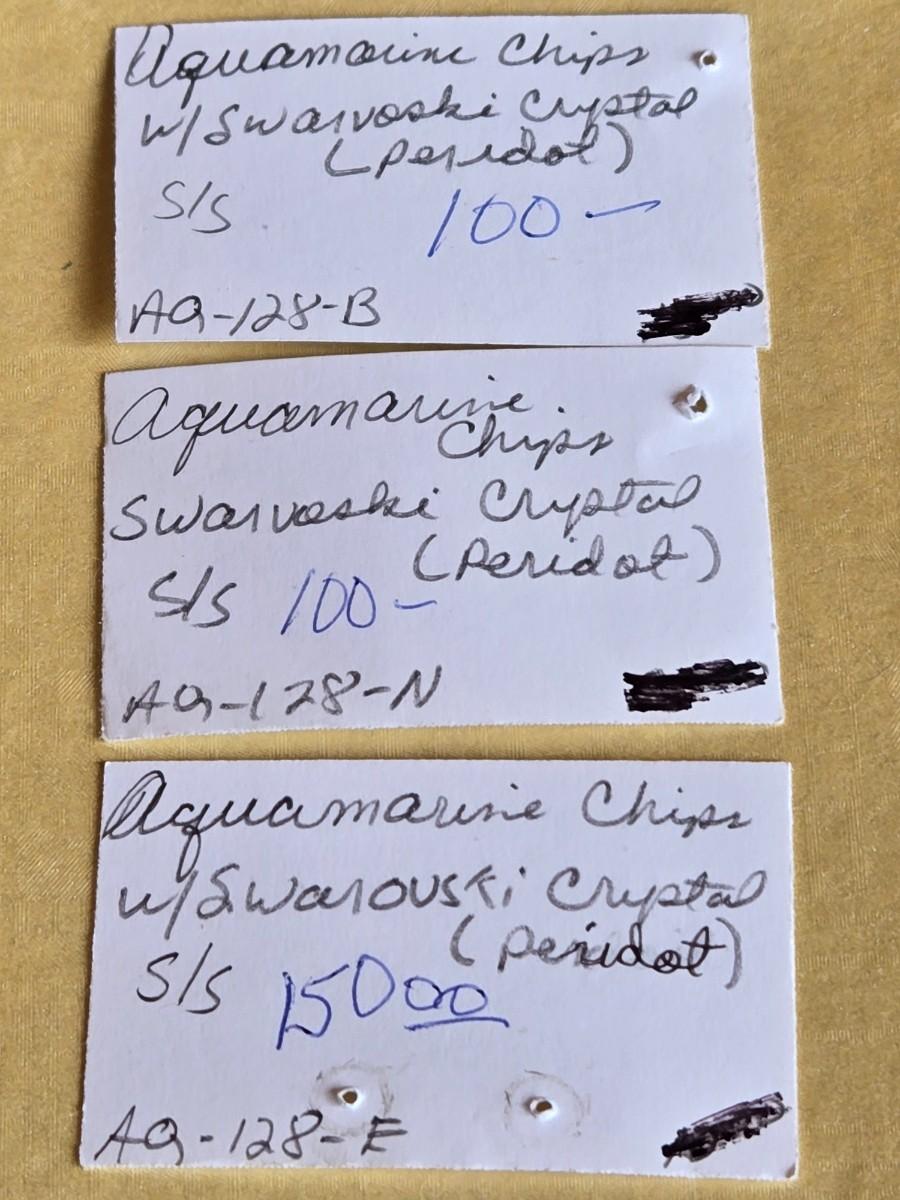 Aquamarine Chips
w/Swarvoski Crystal
(Peridot)
S/S 100 —
AQ-128-B
Aquamarine
Chips
Swarvoski Crystal
(Peridot)
S/S 100 —
AQ-128-N
Aquamarine Chips
w/Swarovski Crystal
(Peridot)
S/S 150 00
AQ-128-E